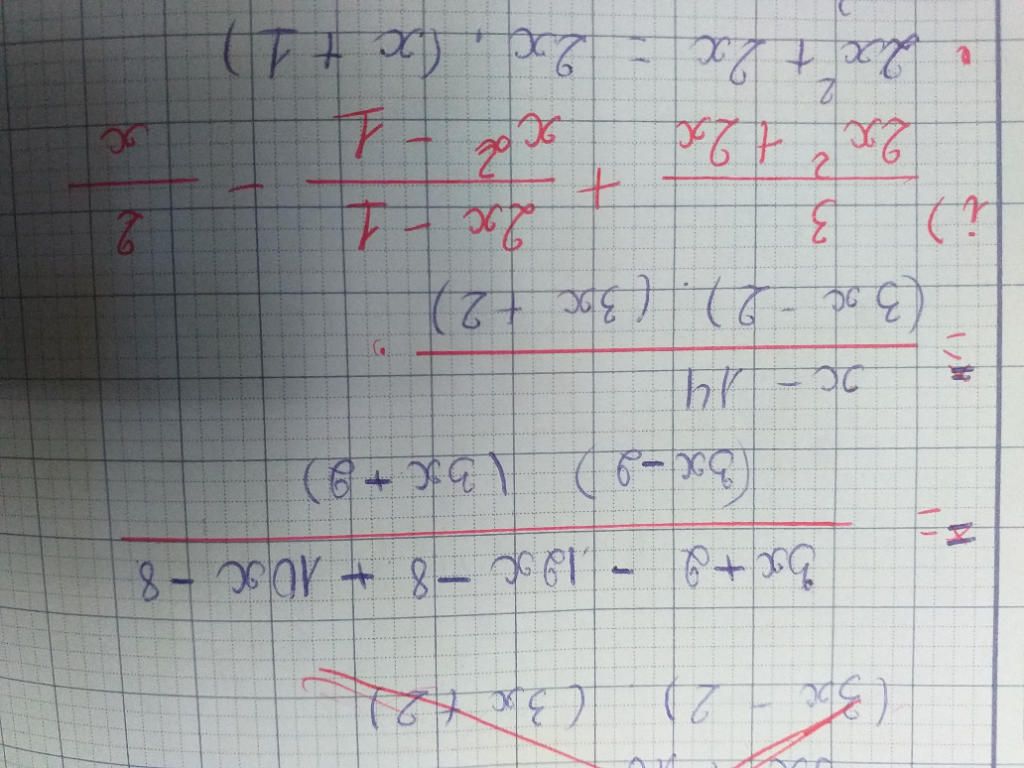 (3x - 2) . (3x + 2)
= 3x + 2 - 12x - 8 + 10x - 8
(3x - 2) (3x + 2)
= x - 14
(3x - 2) . (3x + 2)
i) 3 / 2x² + 2x + 2x - 1 / x² - 1 - 2 / x
• 2x² + 2x = 2x . (x + 1)